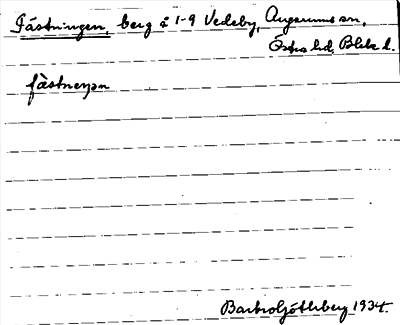 Fästningen, berg å 1-9 Vedeby, Augerums sn,
Östra hd, Blek. l.
fästneɳan
Bertvoljöttberg 1934.